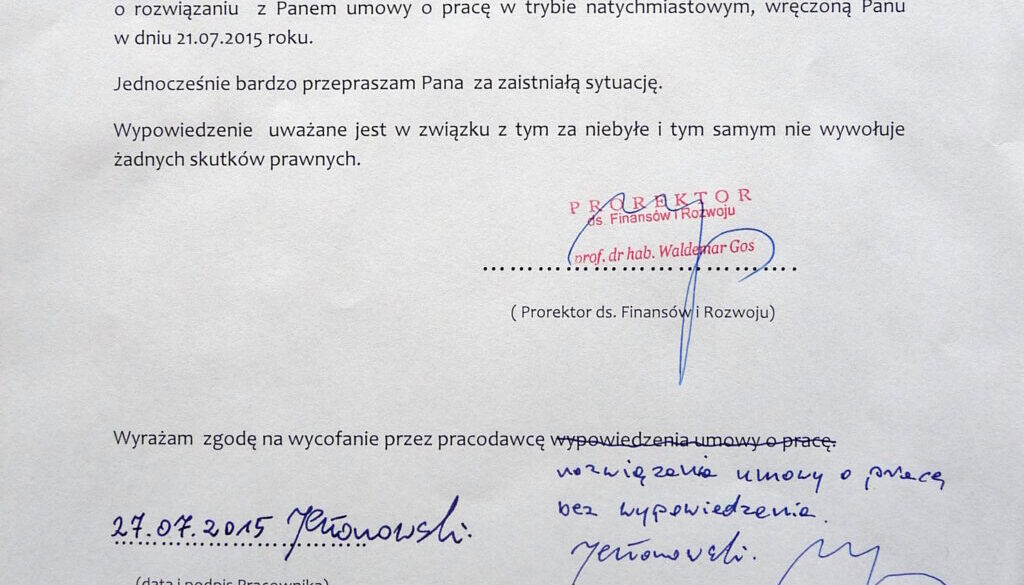 o rozwiązaniu z Panem umowy o pracę w trybie natychmiastowym, wręczoną Panu
w dniu 21.07.2015 roku.
Jednocześnie bardzo przepraszam Pana za zaistniałą sytuację.
Wypowiedzenie uważane jest w związku z tym za niebyłe i tym samym nie wywołuje
żadnych skutków prawnych.
PROREKTOR
ds. Finansów i Rozwoju
prof. dr hab. Waldemar Gos
( Prorektor ds. Finansów i Rozwoju)
Wyrażam zgodę na wycofanie przez pracodawcę wypowiedzenia umowy o pracę.
rozwiązania umowy o pracę
bez wypowiedzenia.
27.07.2015
(data i podpis Pracownika)